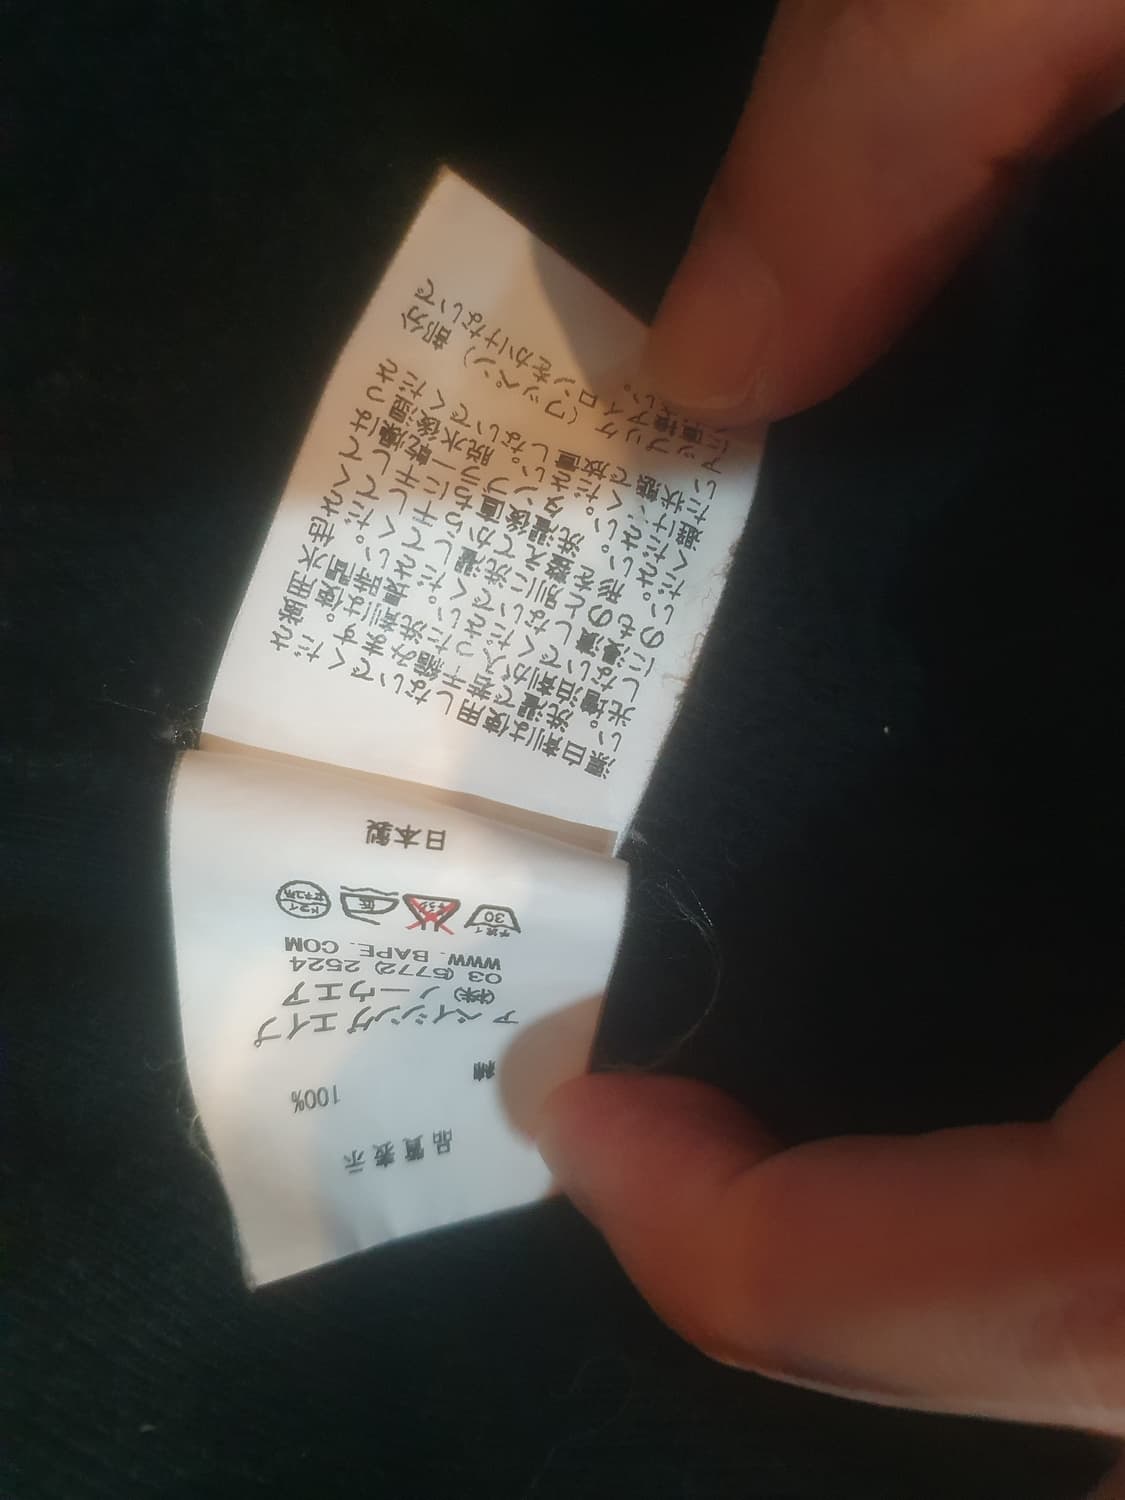 品質表示
綿 100%
ア ベイシング エイプ
(株) ノーウエア
03 (5772) 2524
WWW. BAPE. COM
手洗イ 30
低
ドライ セキユ系
日本製
漂白剤は使用しないでくださ
い。洗濯で若干縮みます。蛍
光増白剤が入った洗剤は使用
しないでください。長時間水
に浸漬しないでください。他
のものと別に洗濯してくださ
い。形を整えて干してくだ
さい。洗濯後直ちに干してく
ださい。タンブラー乾燥は
避けてください。脱水後湿っ
た状態で放置しないでくださ
い。
アップリケ(ワッペン)部分
に直接アイロンをかけないで